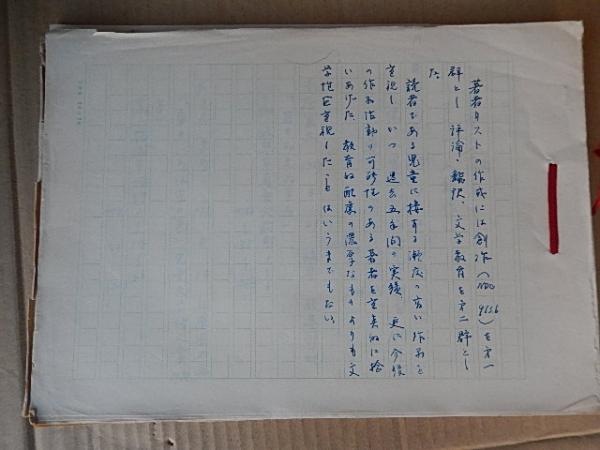 著者リストの作成には創作(NDC 913.6)を第一
群とし 評論・翻訳、文学教育を第二群とし
た。
読者である児童に接する頻度の高い作品を
重視し、いつ 過去五年間の実績 更に今後
の作品活動の可能性のある著者を重点的に拾
いあげた。教育的配慮の濃厚なものよりも文
学性を重視したことはいうまでもない。